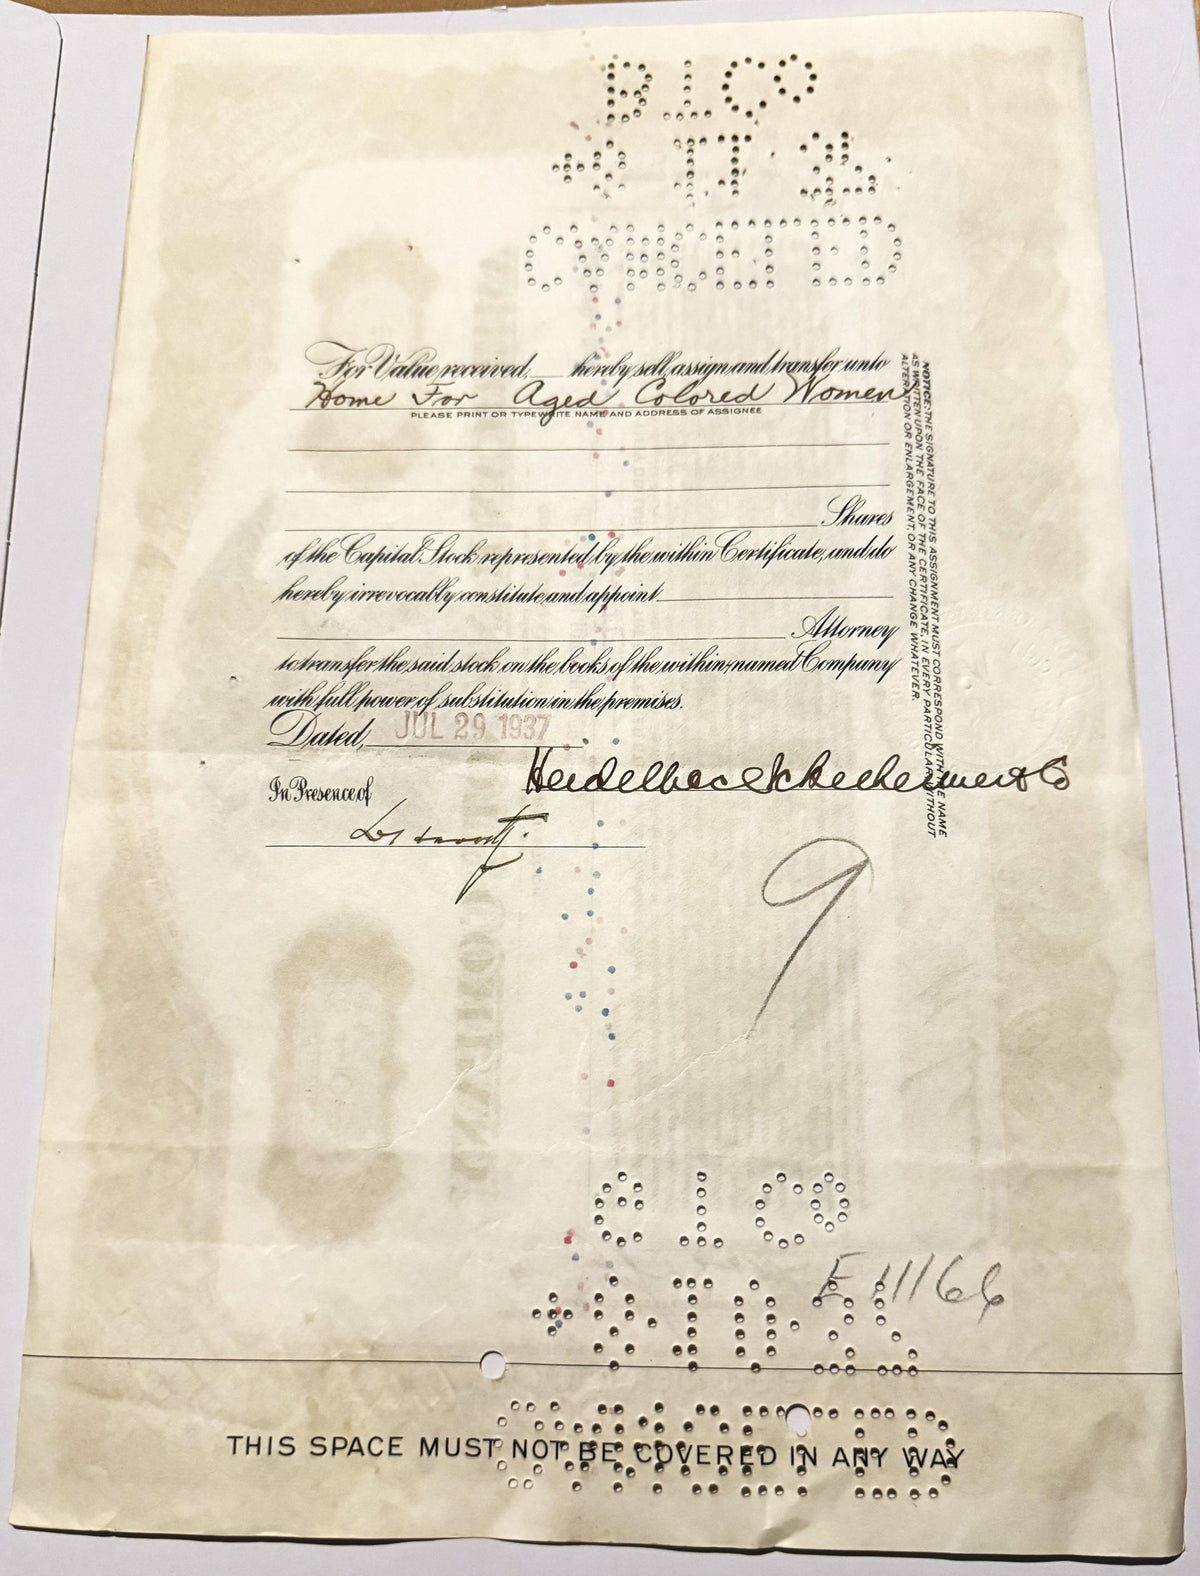 B T CO
CANCELLED
For Value received, hereby sell, assign and transfer unto
Home For Aged Colored Women
PLEASE PRINT OR TYPEWRITE NAME AND ADDRESS OF ASSIGNEE
Shares
of the Capital Stock represented by the within Certificate, and do
hereby irrevocably constitute and appoint
Attorney
to transfer the said stock on the books of the within-named Company
with full power of substitution in the premises.
Dated, JUL 29 1937
In Presence of
NOTICE: THE SIGNATURE TO THIS ASSIGNMENT MUST CORRESPOND WITH THE NAME
AS WRITTEN UPON THE FACE OF THE CERTIFICATE, IN EVERY PARTICULAR, WITHOUT
ALTERATION OR ENLARGEMENT, OR ANY CHANGE WHATEVER.
9
B T CO
E 11166
CANCELLED
THIS SPACE MUST NOT BE COVERED IN ANY WAY